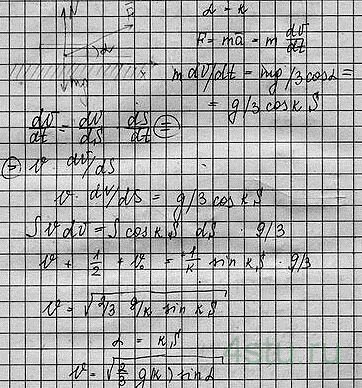 N
F
α
x
mg
α - k
F = ma̅ = m dv̅/dt
m dv/dt = mg/3 cosα =
= g/3 cos k S
dv/dt = dv/dS · dS/dt =
= v · dv/dS
v · dv/dS = g/3 cos k S
∫ v dv = ∫ cos k S · dS · g/3
v + 1/2 + v₀ = 1/k sin k S · g/3
v = √(2/3 g/k sin k S)
α = k S
v = √(2/3 g(k) sin α)
4stu.ru